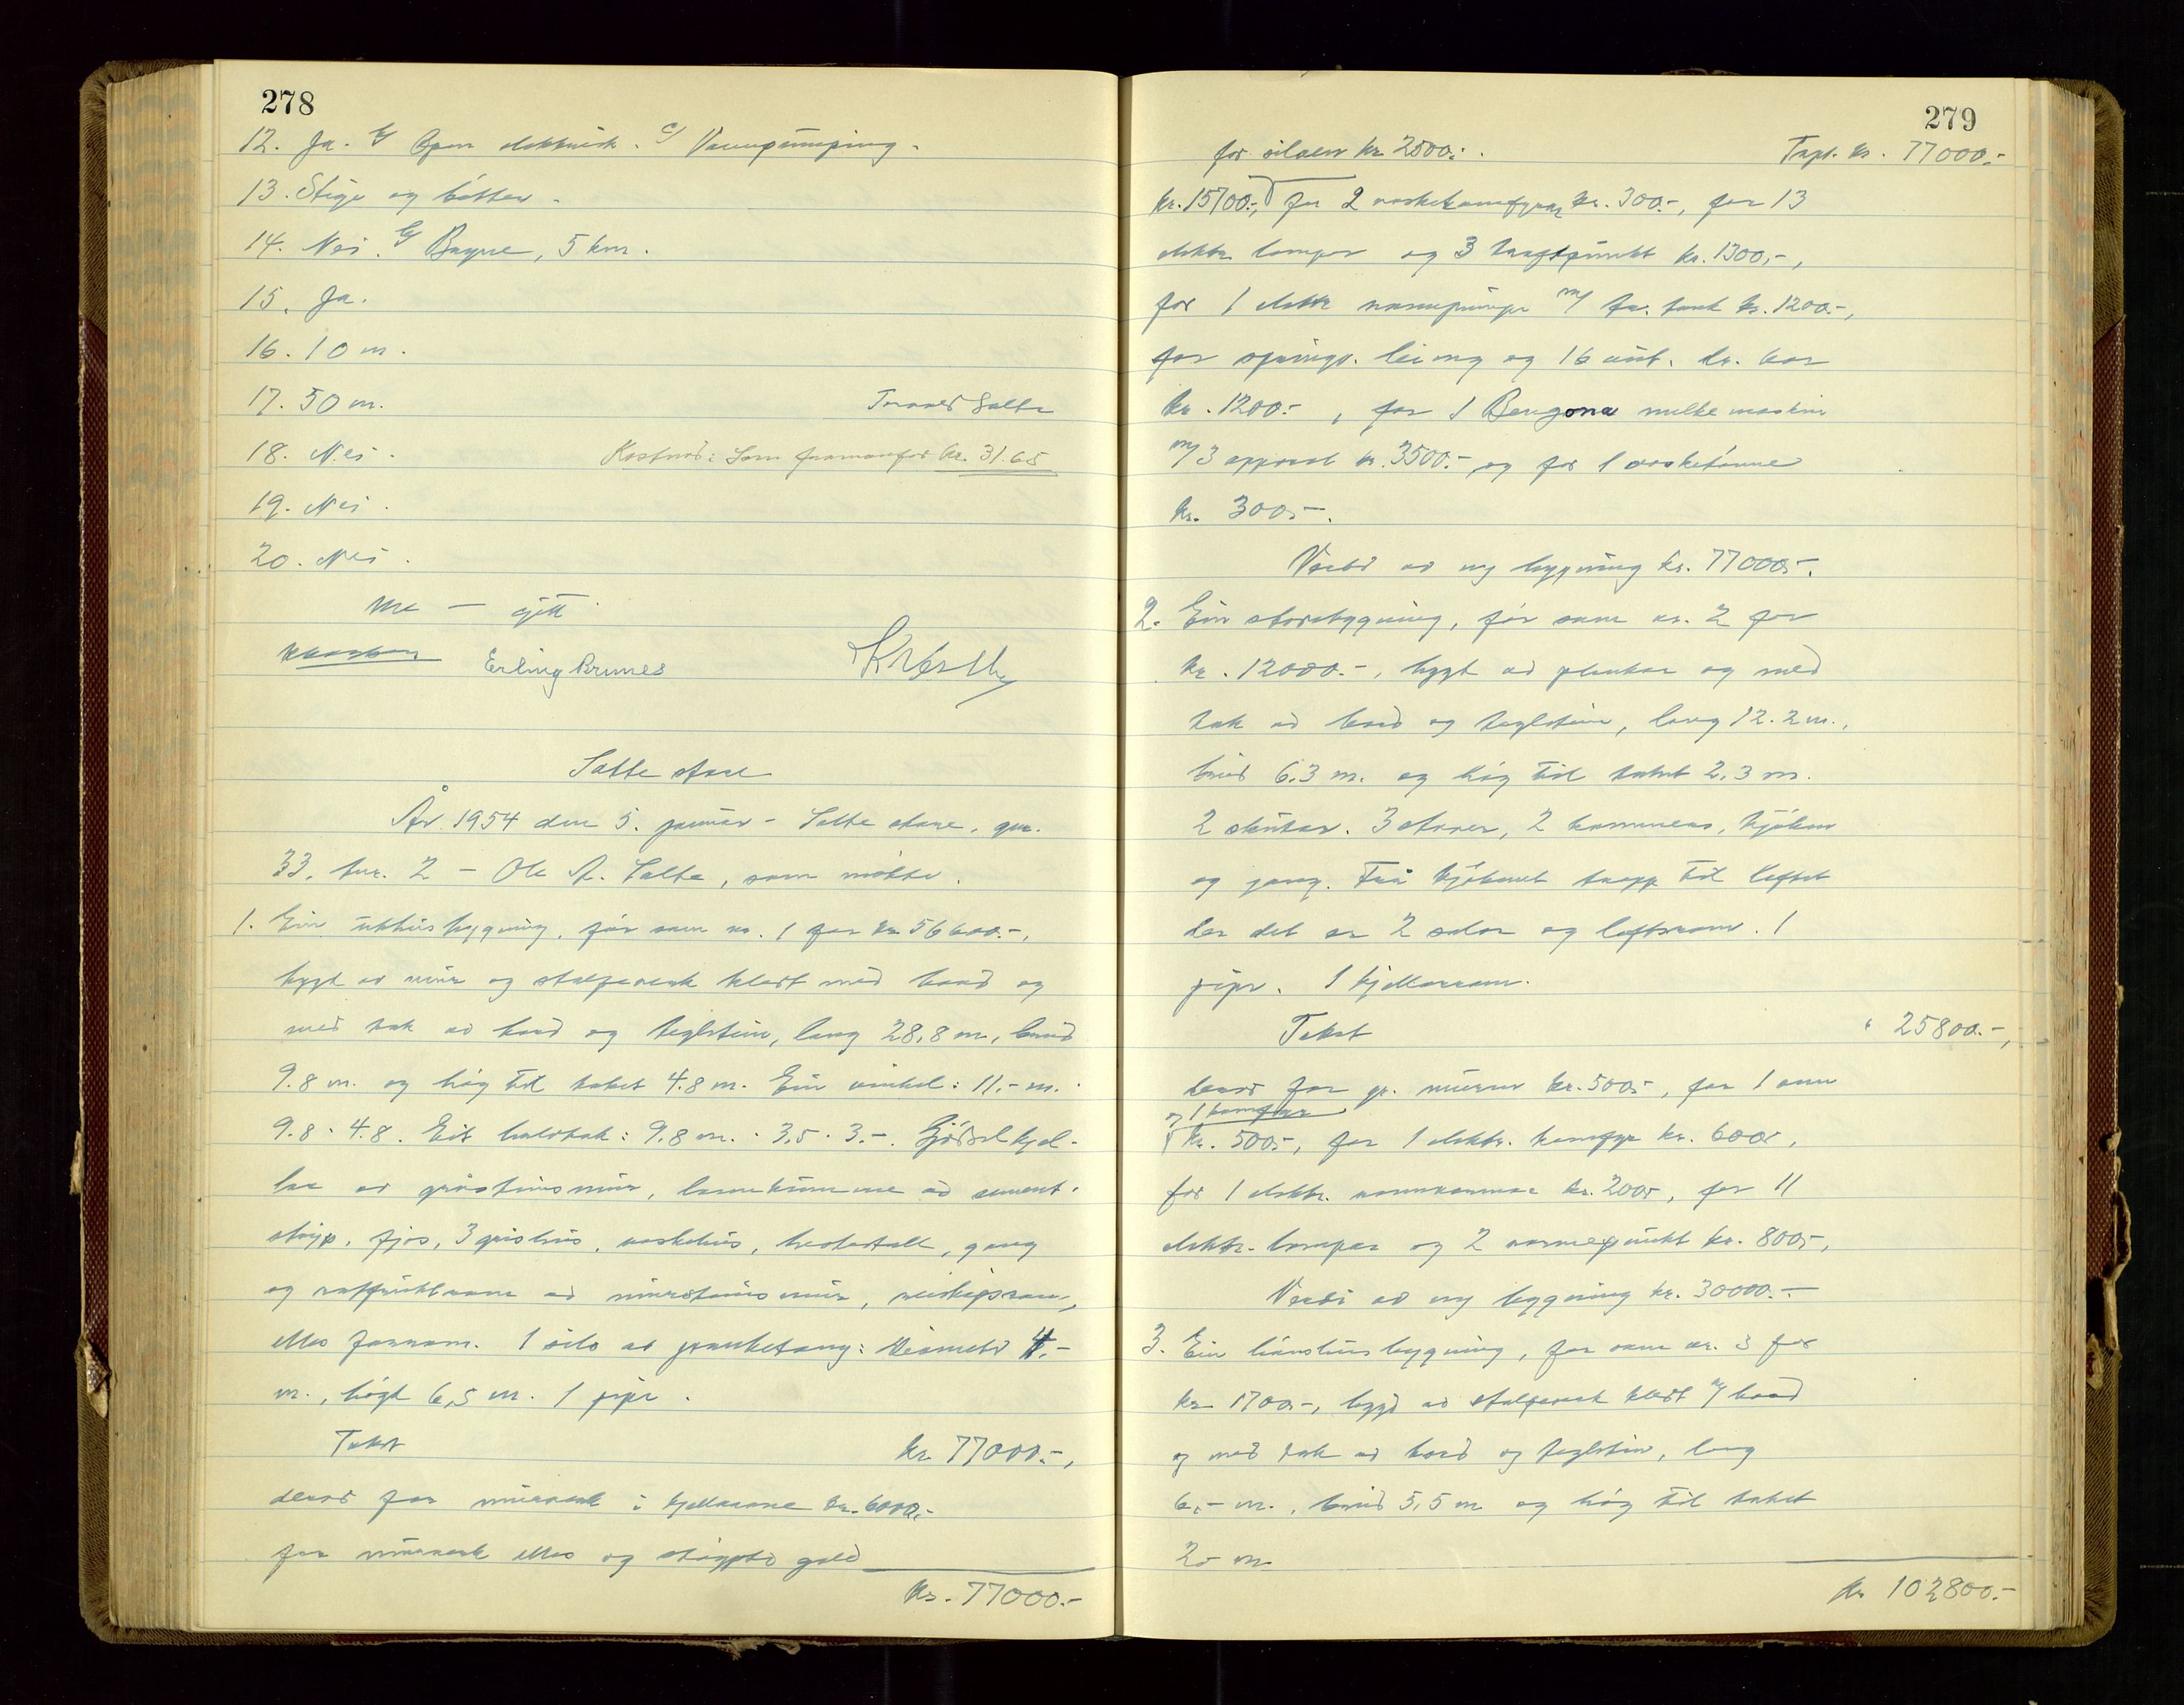 278
12. Ja. b/ Open elektrisk. c/ Vasspumping.
13. Stige og bøtter.
14. Nei. b/ Bryne, 5 km.
15. Ja.
16. 10 m.
17. 50 m. Salte
18. Nei. Kostnad: Som framanfor kr. 31.65
19. Nei.
20. Nei.
Erling Brunes
Salte store
År 1954 den 5. januar - Salte store, gnr.
33, bnr. 2 - Ole A. Salte, som møtte.
1. Ein uthusbygning, før som nr. 1 for kr 56600.-,
bygt av mur og stolpeverk kledt med bord og
med tak av bord og teglstein, lang 28,8 m, breid
9.8 m. og høg til taket 4.8 m. Ein vinkel: 11.- m.
9.8 · 4.8. Eit halvtak: 9.8 m. · 3,5 · 3.-. Gjødselkjel-
lar av gråsteinsmur, landkumme av sement-
støyp, fjøs, 3 grishus, vaskehus, hestestall, gang
og rotfruktrom av mursteinsmur, reidskapsrom,
elles forrom. 1 silo av : diameter 4.-
m., høgt 6,5 m. 1 pipe.
Takst kr. 77000.-,
derav for murverk i kjellarane kr. 6000.-
for murverk elles og støypte golv
kr. 77000.-
279
for siloen kr 2500.-. Trsp. kr. 77000.-
kr. 15700.-, for 2 vaskekomfyrar kr. 300.-, for 13
elektr. lamper og 3 kraftpunkt kr. 1300,-,
for 1 elektr. vasspumpe m/ tr. tank kr. 1200.-,
for springv. leidng og 16 aut. dr. kar
kr. 1200.-, for 1 Bergona melkemaskin
m/ 3 apparat kr. 3500.- og for 1 vasketønne
kr. 300.-.
Verdi av ny bygning kr. 77000.-.
2. Ein storebygning, før som nr. 2 for
kr. 12000.-, bygt av plankar og med
tak av bord og teglstein, lang 12.2 m.,
breid 6.3 m. og høg til taket 2.3 m.
2 skutar. 3 stover, 2 kammers, kjøken
og gang. Frå kjøkenet trapp til loftet
der det er 2 salar og loftsrom. 1
pipe. 1 kjellarrom.
Takst " 25800.-,
derav for gr. muren kr. 500.-, for 1 omn
og 1 komfyr
kr. 500.-, for 1 elektr. komfyr kr. 600.-,
for 1 elektr. kr. 200.-, for 11
elektr. lampar og 2 varmepunkt kr. 800.-,
Verdi av ny bygning kr. 30000.-
3. Ein hønshusbygning, før som nr. 3 for
kr 1700.-, bygd av stolpeverk kledt m/ bord
og med tak av bord og teglstein, lang
6.- m., breid 5,5 m og høg til taket
2.- m.
kr 102800.-